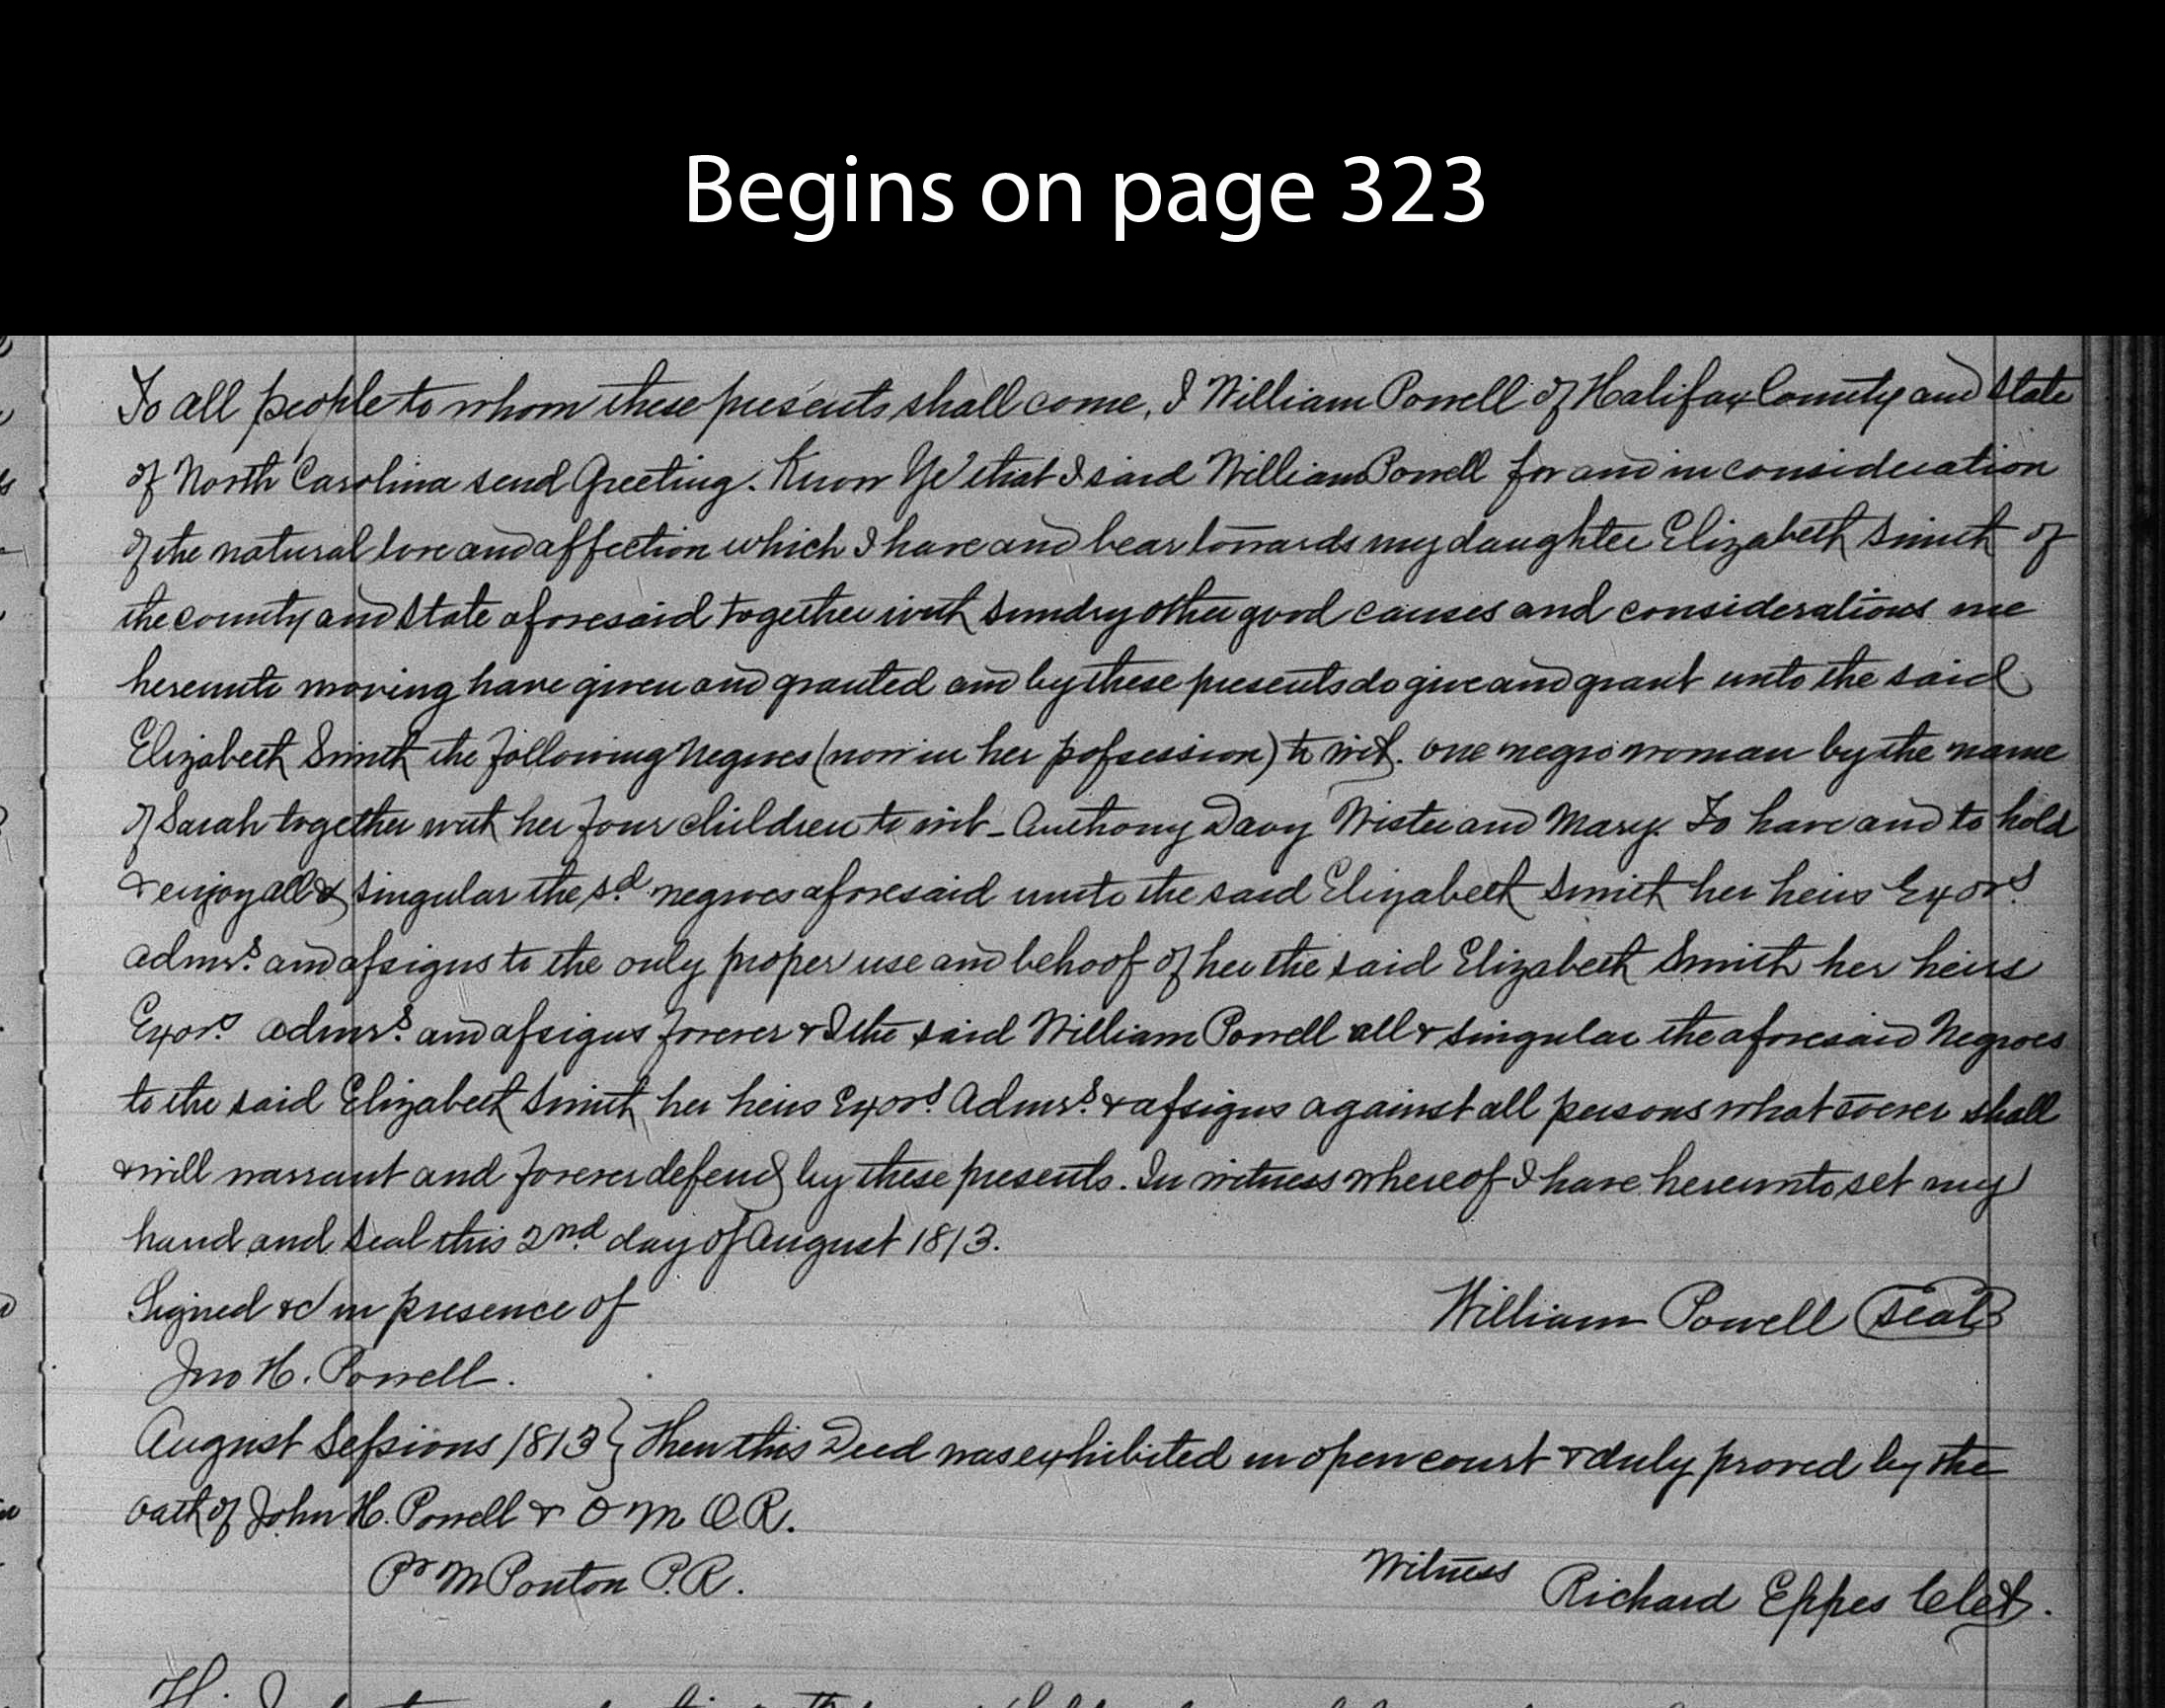 Begins on page 323
To all people to whom these presents shall come, I William Powell of Halifax County and State
of North Carolina send Greeting. Know Ye that I said William Powell for and in consideration
of the natural love and affection which I have and bear towards my daughter Elizabeth Smith of
the county and State aforesaid together with sundry other good causes and considerations me
hereunto moving have given and granted and by these presents do give and grant unto the said
Elizabeth Smith the following Negroes (now in her possession) to wit. one negro woman by the name
of Sarah together with her four children to wit - Anthony Davy Wister and Mary. To have and to hold
& enjoy all & singular the sd. negroes aforesaid unto the said Elizabeth Smith her heirs Exors.
admrs. and assigns to the only proper use and behoof of her the said Elizabeth Smith her heirs
Exors. admrs. and assigns forever & I the said William Powell all & singular the aforesaid Negroes
to the said Elizabeth Smith her heirs Exors. Admrs. & assigns against all persons whatsoever shall
& will warrant and forever defend by these presents. In witness whereof I have hereunto set my
hand and seal this 2nd day of August 1813.
Signed &c in presence of
William Powell (Seal)
Jno H. Powell.
August Sessions 1813 } Then this Deed was exhibited in open court & duly proved by the
oath of John H. Powell & O M O.R.
Pr M Ponton P.R.
Witness Richard Eppes Clet.